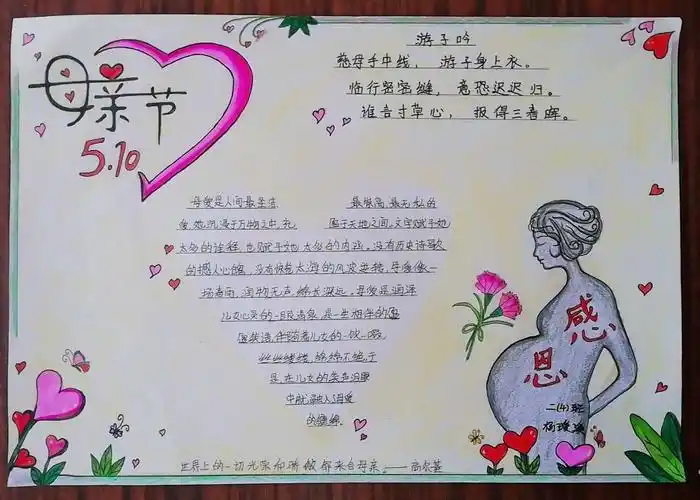 母亲节
5.10
游子吟
慈母手中线，游子身上衣。
临行密密缝，意恐迟迟归。
谁言寸草心，报得三春晖。
母爱是人间最圣洁 最崇高 最无私的
爱,她沉浸于万物之中,充 盈于天地之间,文字赋予她
太多的诠释,也赋予她太多的内涵,没有历史诗歌
的撼人心魄,没有惊艳大海的风波逆转,母爱像一
场春雨,润物无声,绵长深远。母爱是润泽
儿女心灵的一眼清泉,是一生相伴的
伴随着儿女的一饮一啜
丝丝缕缕,绵绵不绝,于
是,在儿女的笑声泪
中就融入母爱
的缠绵.
感
恩
二(4)班
世界上的一切光荣和骄傲都来自母亲。——高尔基